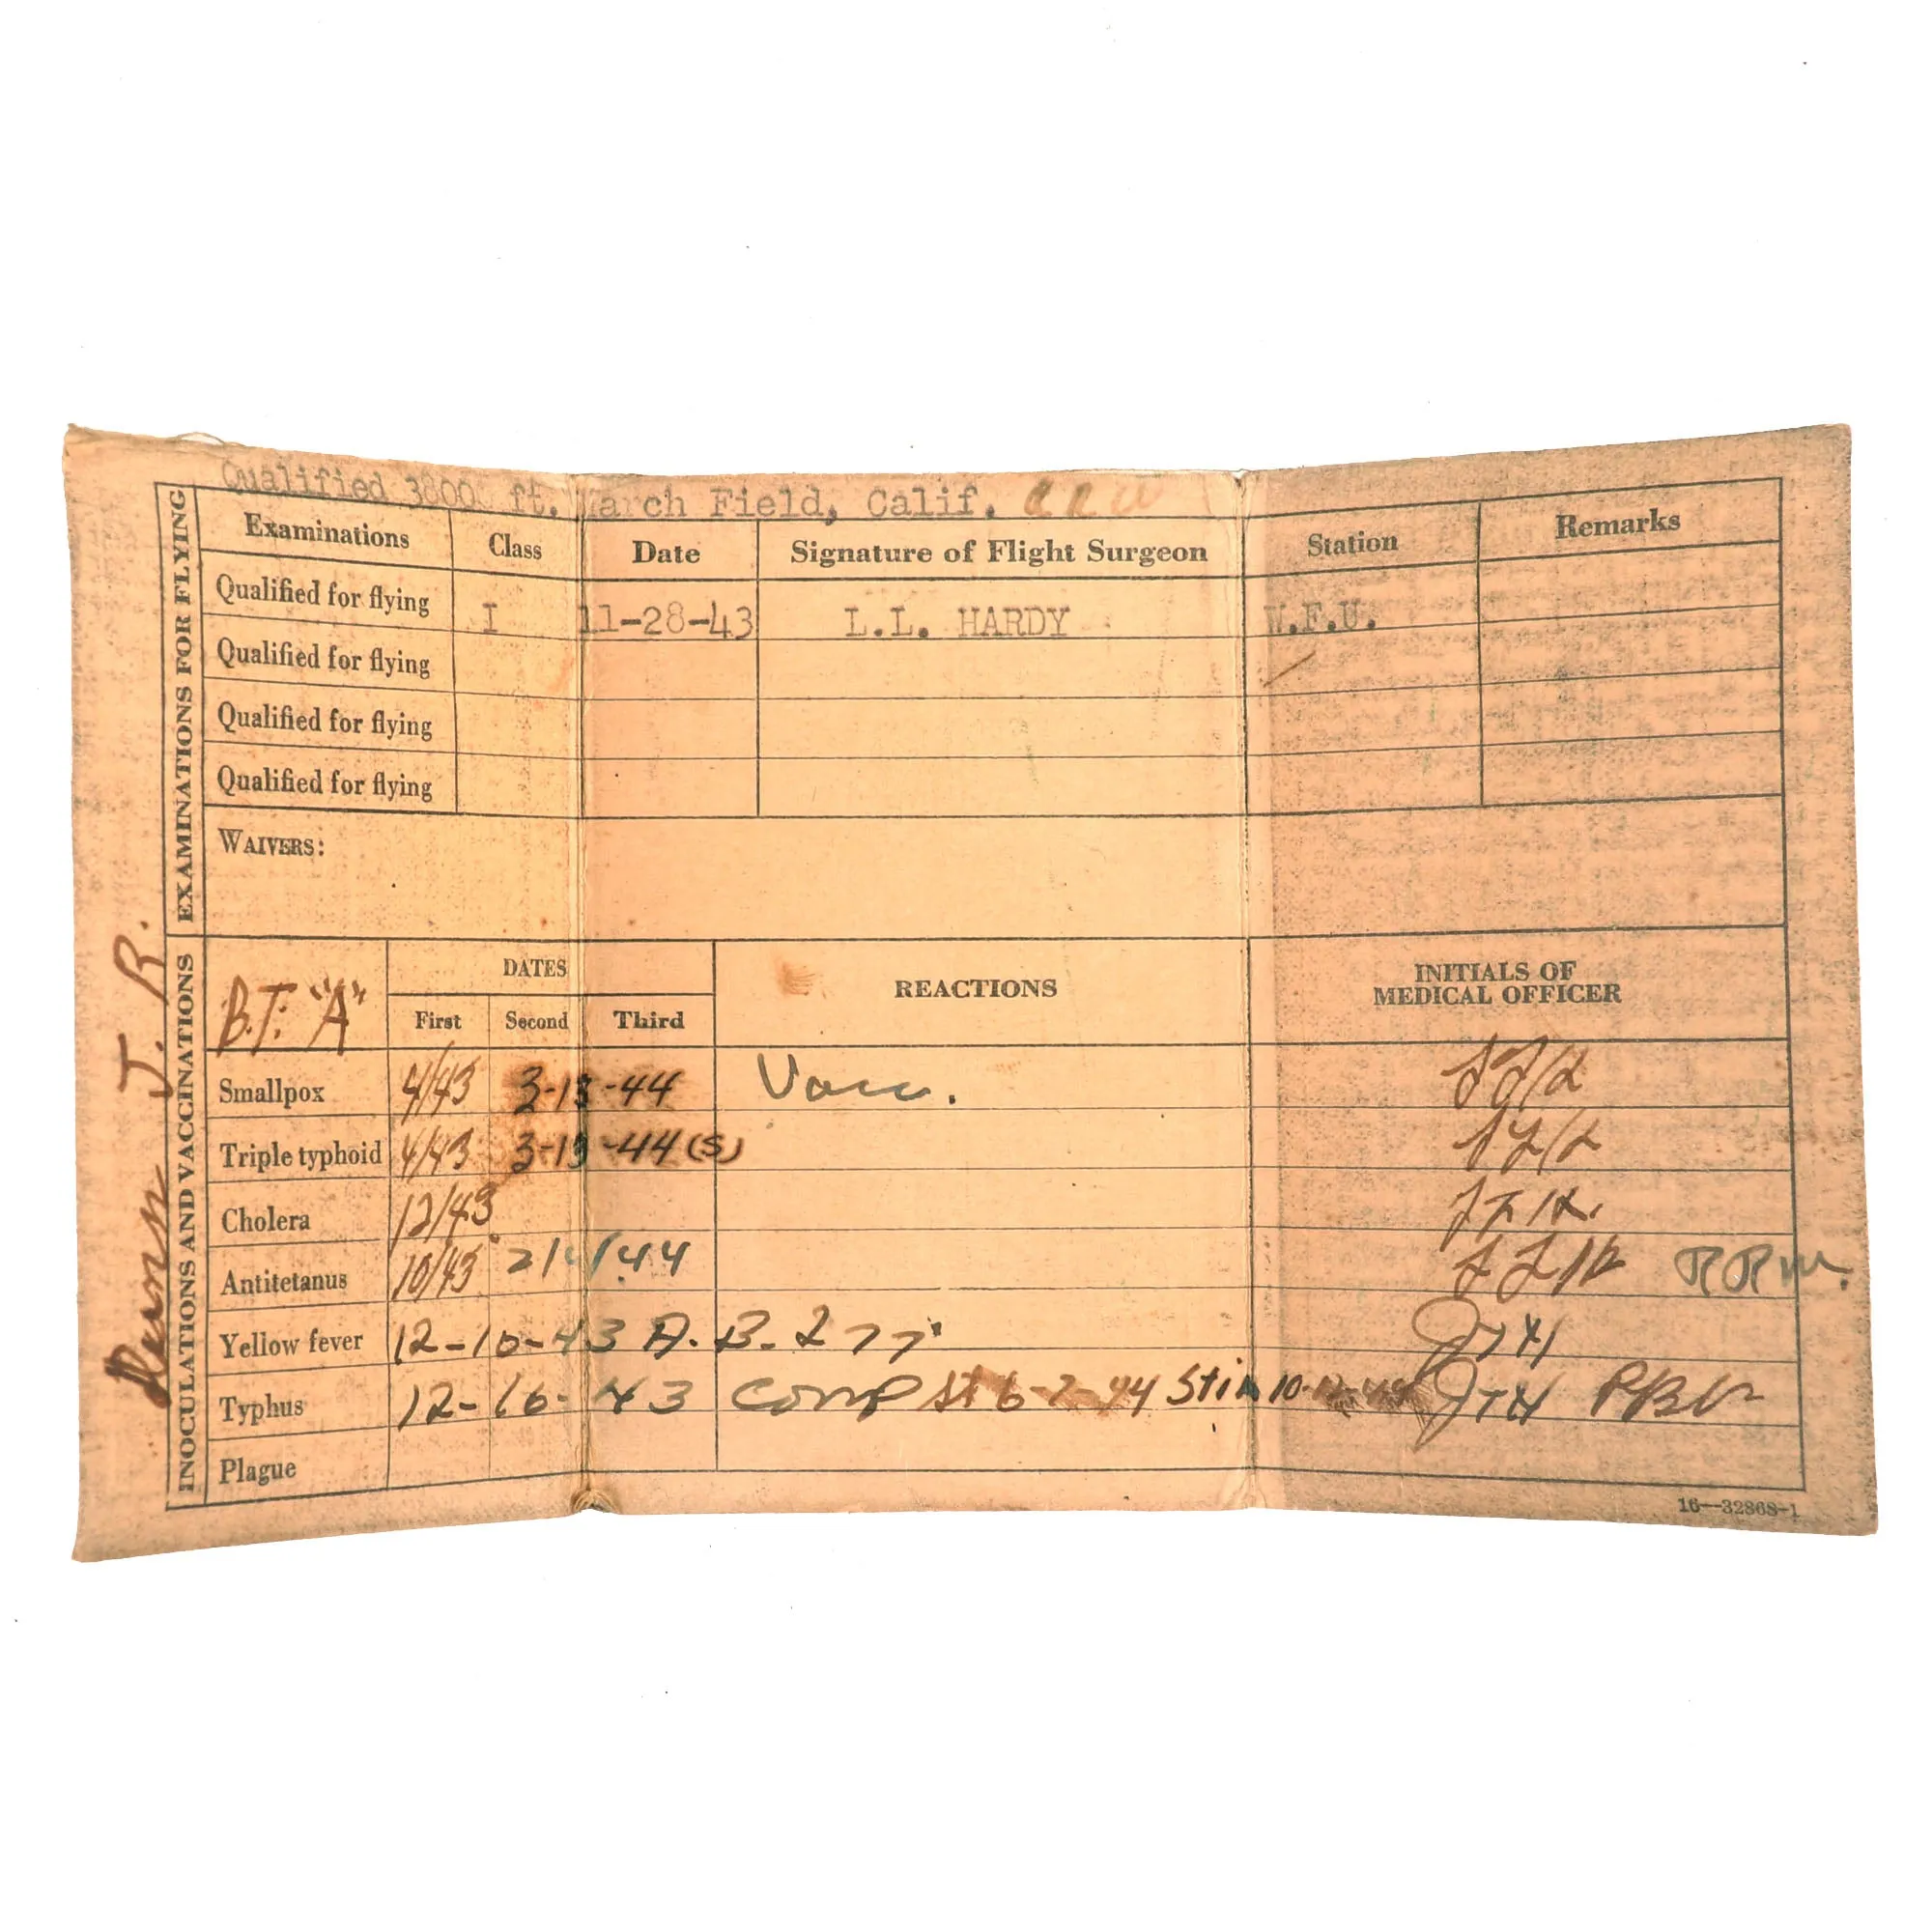 Qualified 38000 ft. March Field, Calif.
EXAMINATIONS FOR FLYING
Examinations Class Date Signature of Flight Surgeon Station Remarks
Qualified for flying I 11-28-43 L.L. HARDY W.F.U.
Qualified for flying
Qualified for flying
Qualified for flying
WAIVERS:
J. R.
INOCULATIONS AND VACCINATIONS
B.T. "A" DATES REACTIONS INITIALS OF
MEDICAL OFFICER
First Second Third
Smallpox 4/43 3-13-44
Triple typhoid 4/43 3-13-44 (S)
Cholera 12/43
Antitetanus 10/43 2/4/44 RRW.
Yellow fever 12-10-43 A.B-277 JTH
Typhus 12-16-43 Comp St 6-7-44 Stim JTH
Plague
16—32868-1